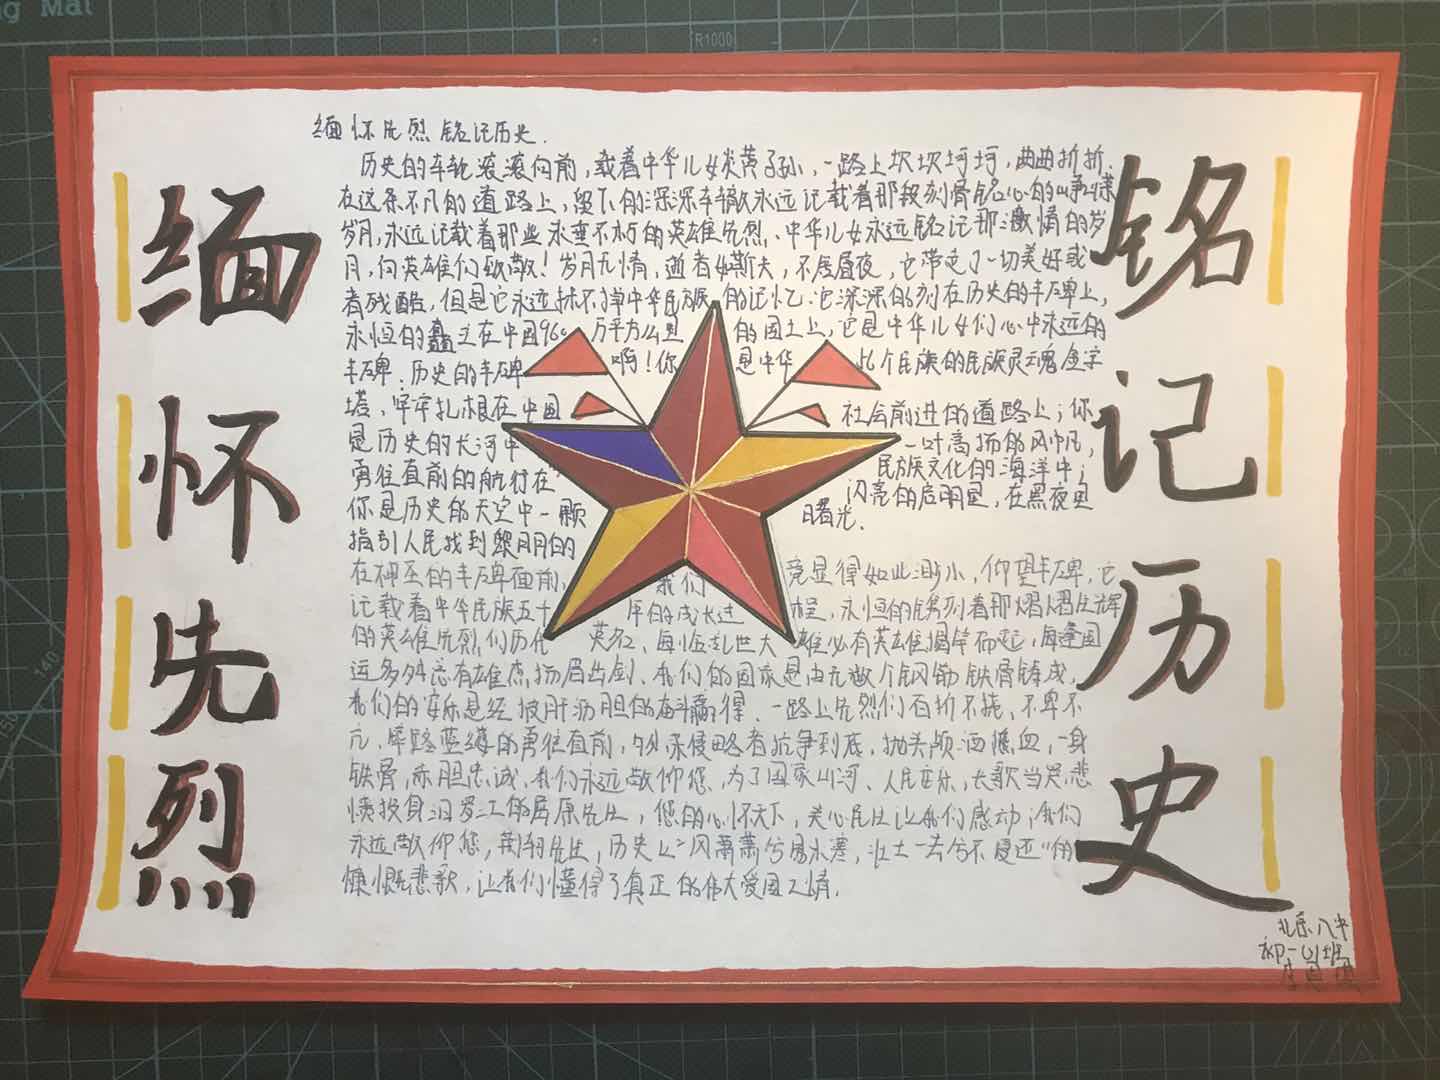 缅怀先烈
铭记历史
缅怀先烈 铭记历史.
历史的车轮滚滚向前，载着中华儿女炎黄子孙，一路上坎坎坷坷，曲曲折折.
在这条不凡的道路上，留下的深深车辙永远记载着那段刻骨铭心的峥嵘
岁月，永远记载着那些永垂不朽的英雄先烈、中华儿女永远铭记那激情的岁
月，向英雄们致敬！岁月无情，逝者如斯夫，不居昼夜，它带走了一切美好或
者残酷，但是它永远抹不掉中华民族 的记忆.它深深的刻在历史的丰碑上，
永恒的矗立在中国960 万平方公里 的国土上，它是中华儿女们心中永远的
丰碑.历史的丰碑 啊！你 是中华 此个民族的民族灵魂金字
塔，牢牢扎根在中国 社会前进的道路上；你
是历史的长河中 一叶高扬的风帆，
勇往直前的航行在 民族文化的海洋中；
你是历史的天空中一颗 闪亮的启明星，在黑夜里
指引人民找到黎明的 曙光.
在神圣的丰碑面前， 我们 竟显得如此渺小，仰望丰碑，它
记载着中华民族五十 年的成长过 程，永恒的镌刻着那熠熠生辉
的英雄先烈们历代 英名，每临乱世大 雄必有英雄揭竿而起，每逢国
运多舛总有雄杰扬眉出剑、我们的国家是由无数个钢筋铁骨铸成，
我们的安乐是经披肝沥胆的奋斗赢得.一路上先烈们百折不挠、不卑不
亢，筚路蓝缕的勇往直前，与外来侵略者抗争到底，抛头颅洒热血，一身
铁骨，赤胆忠诚，我们永远敬仰您、为了国家山河、人民安乐，长歌当哭，悲
愤投身汨罗江的屈原先生，您的心怀天下，关心民生让我们感动；我们
永远敬仰您，荆轲先生，历史上“风萧萧兮易水寒，壮士一去兮不复还”的
慷慨悲歌，让我们懂得了真正的伟大爱国之情.
北京八中
初一(3)班